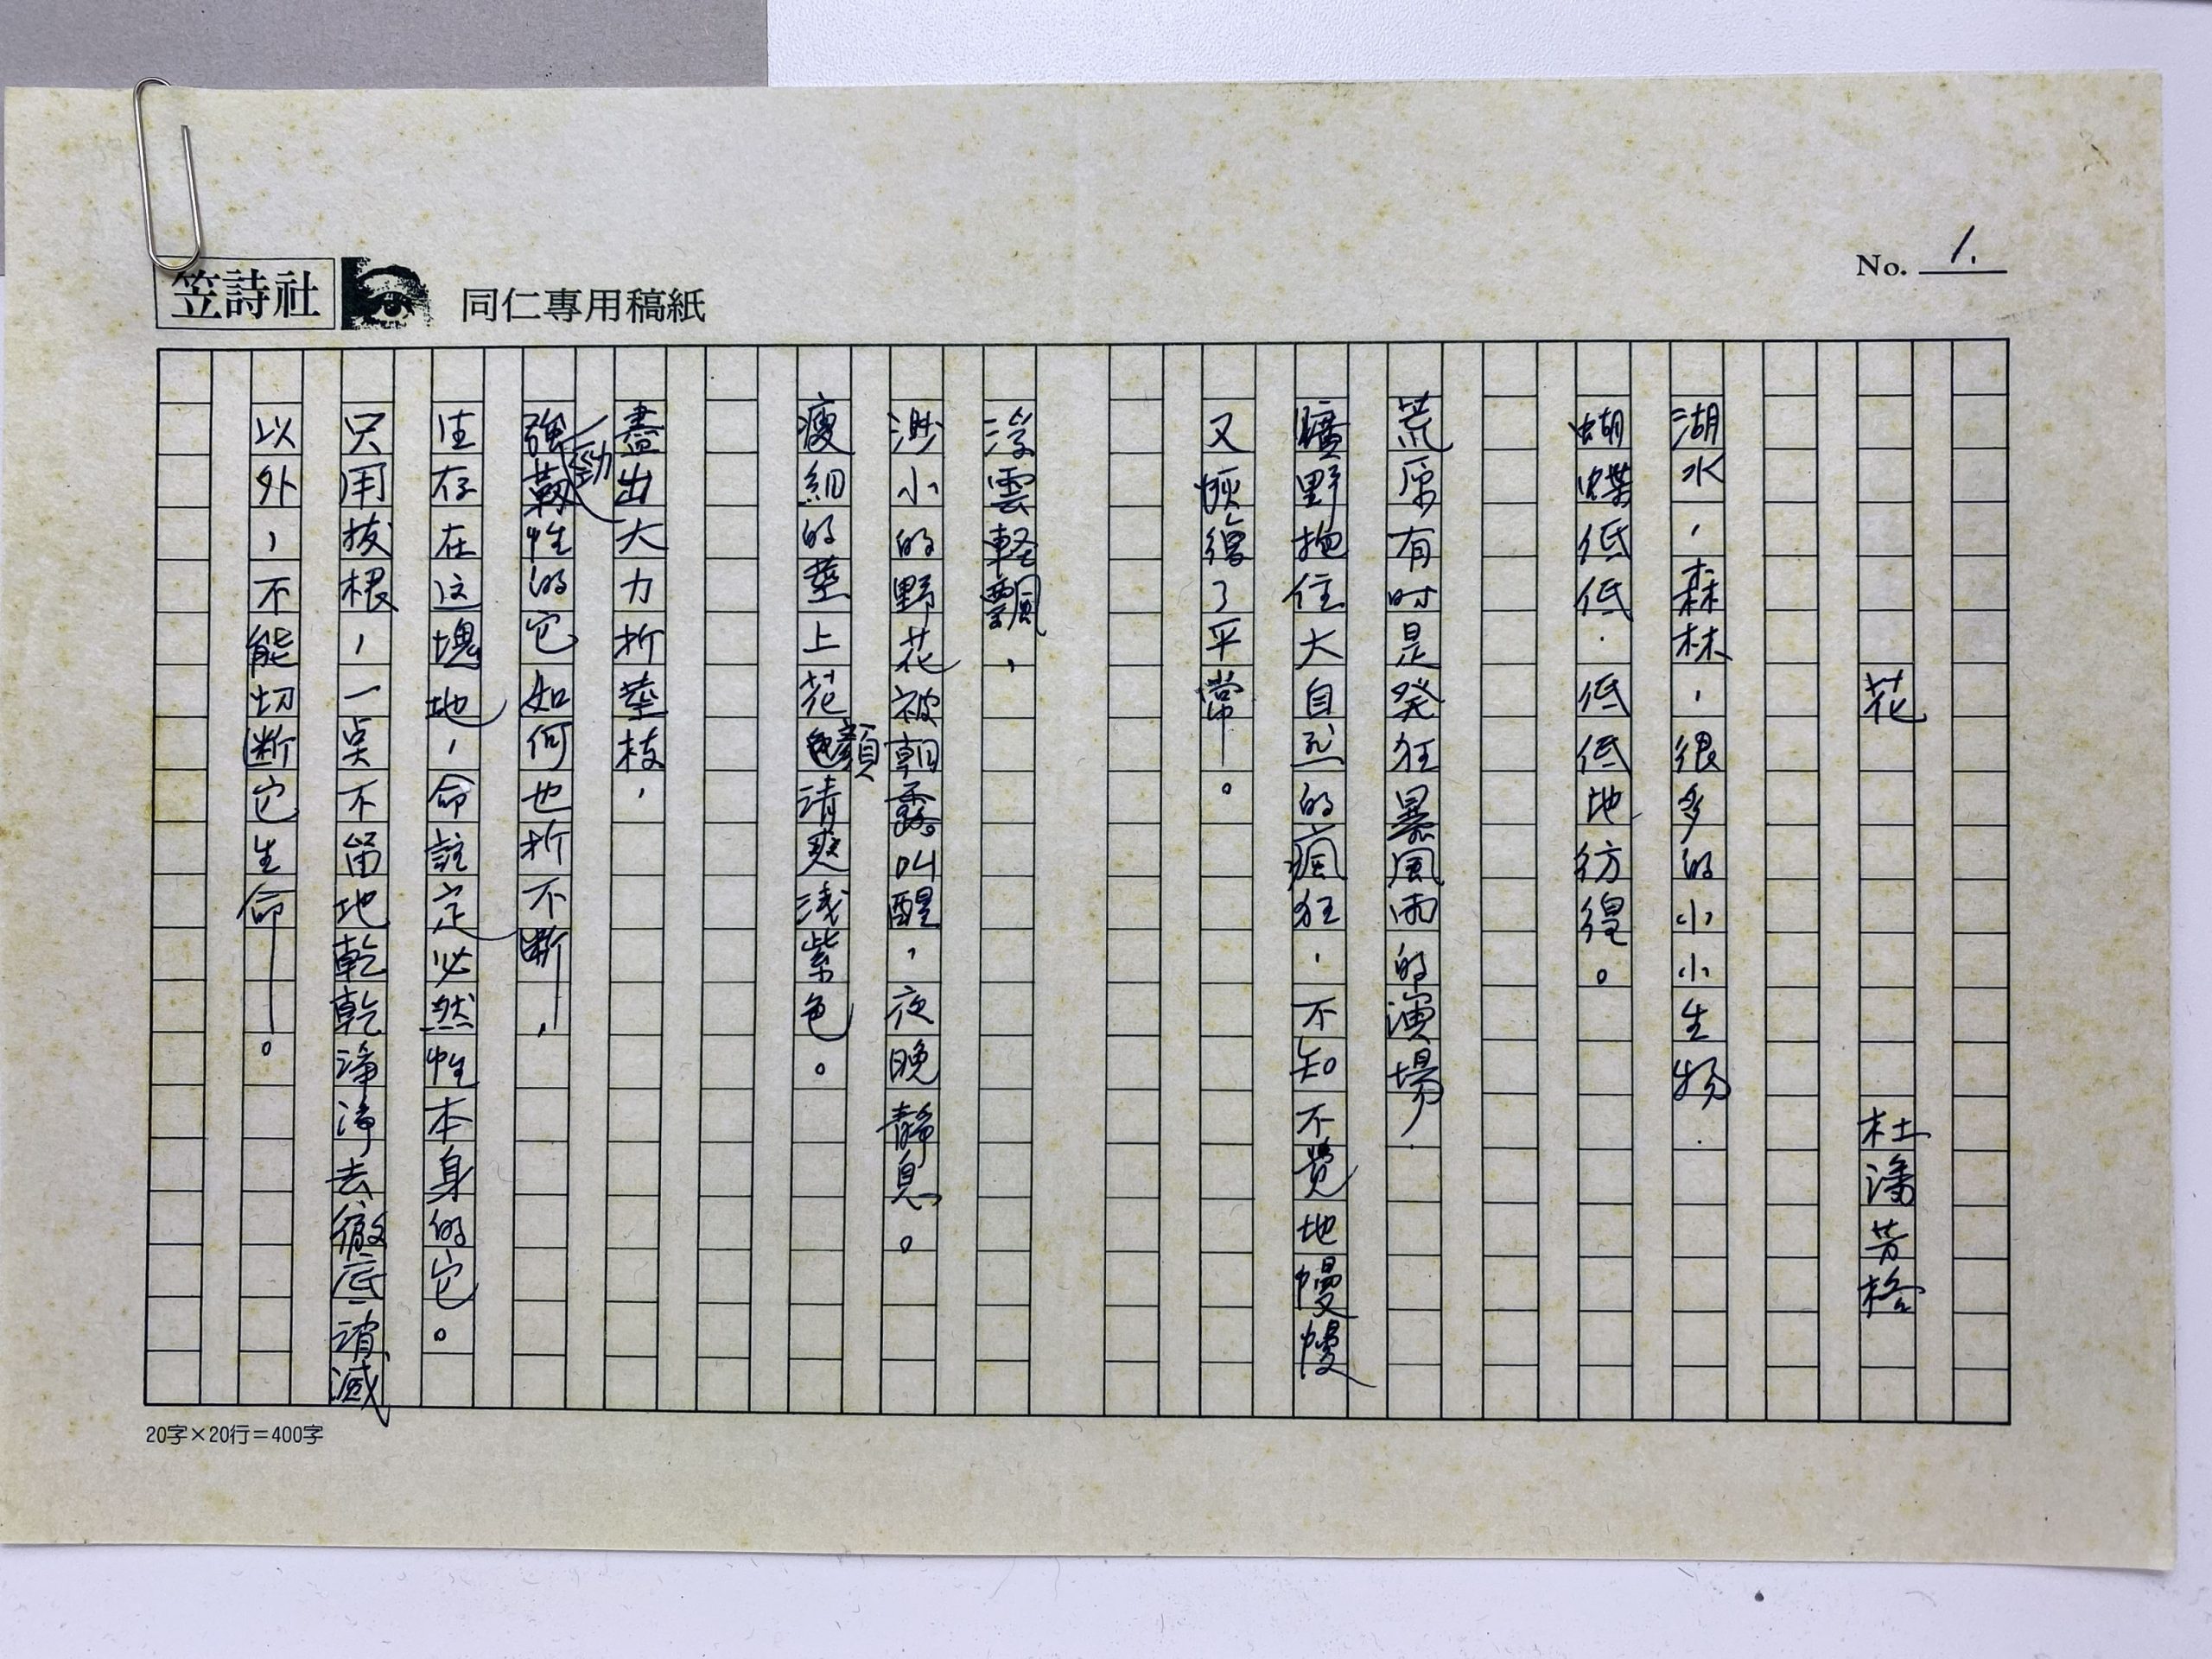 No. 1.
笠詩社 同仁專用稿紙
花 杜潘芳格
湖水，森林，很多的小小生物．
蝴蝶低低．低低地彷徨。
荒原有时是癸狂暴風雨的演場．
曠野抱住大自然的瘋狂．不知不覺地慢慢
又恢復了平常—。
浮雲軽飄，
渺小的野花被朝露叫醒．夜晚靜息。
瘦細的莖上花顏色清爽浅紫色。
盡出大力折莖枝．
強勁韌性的它如何也折不断—，
生存在这塊地，命註定必然性本身的它。
只用拔根，一奌不留地乾乾淨淨去徹底消滅
以外，不能切断它生命——。
20字×20行＝400字